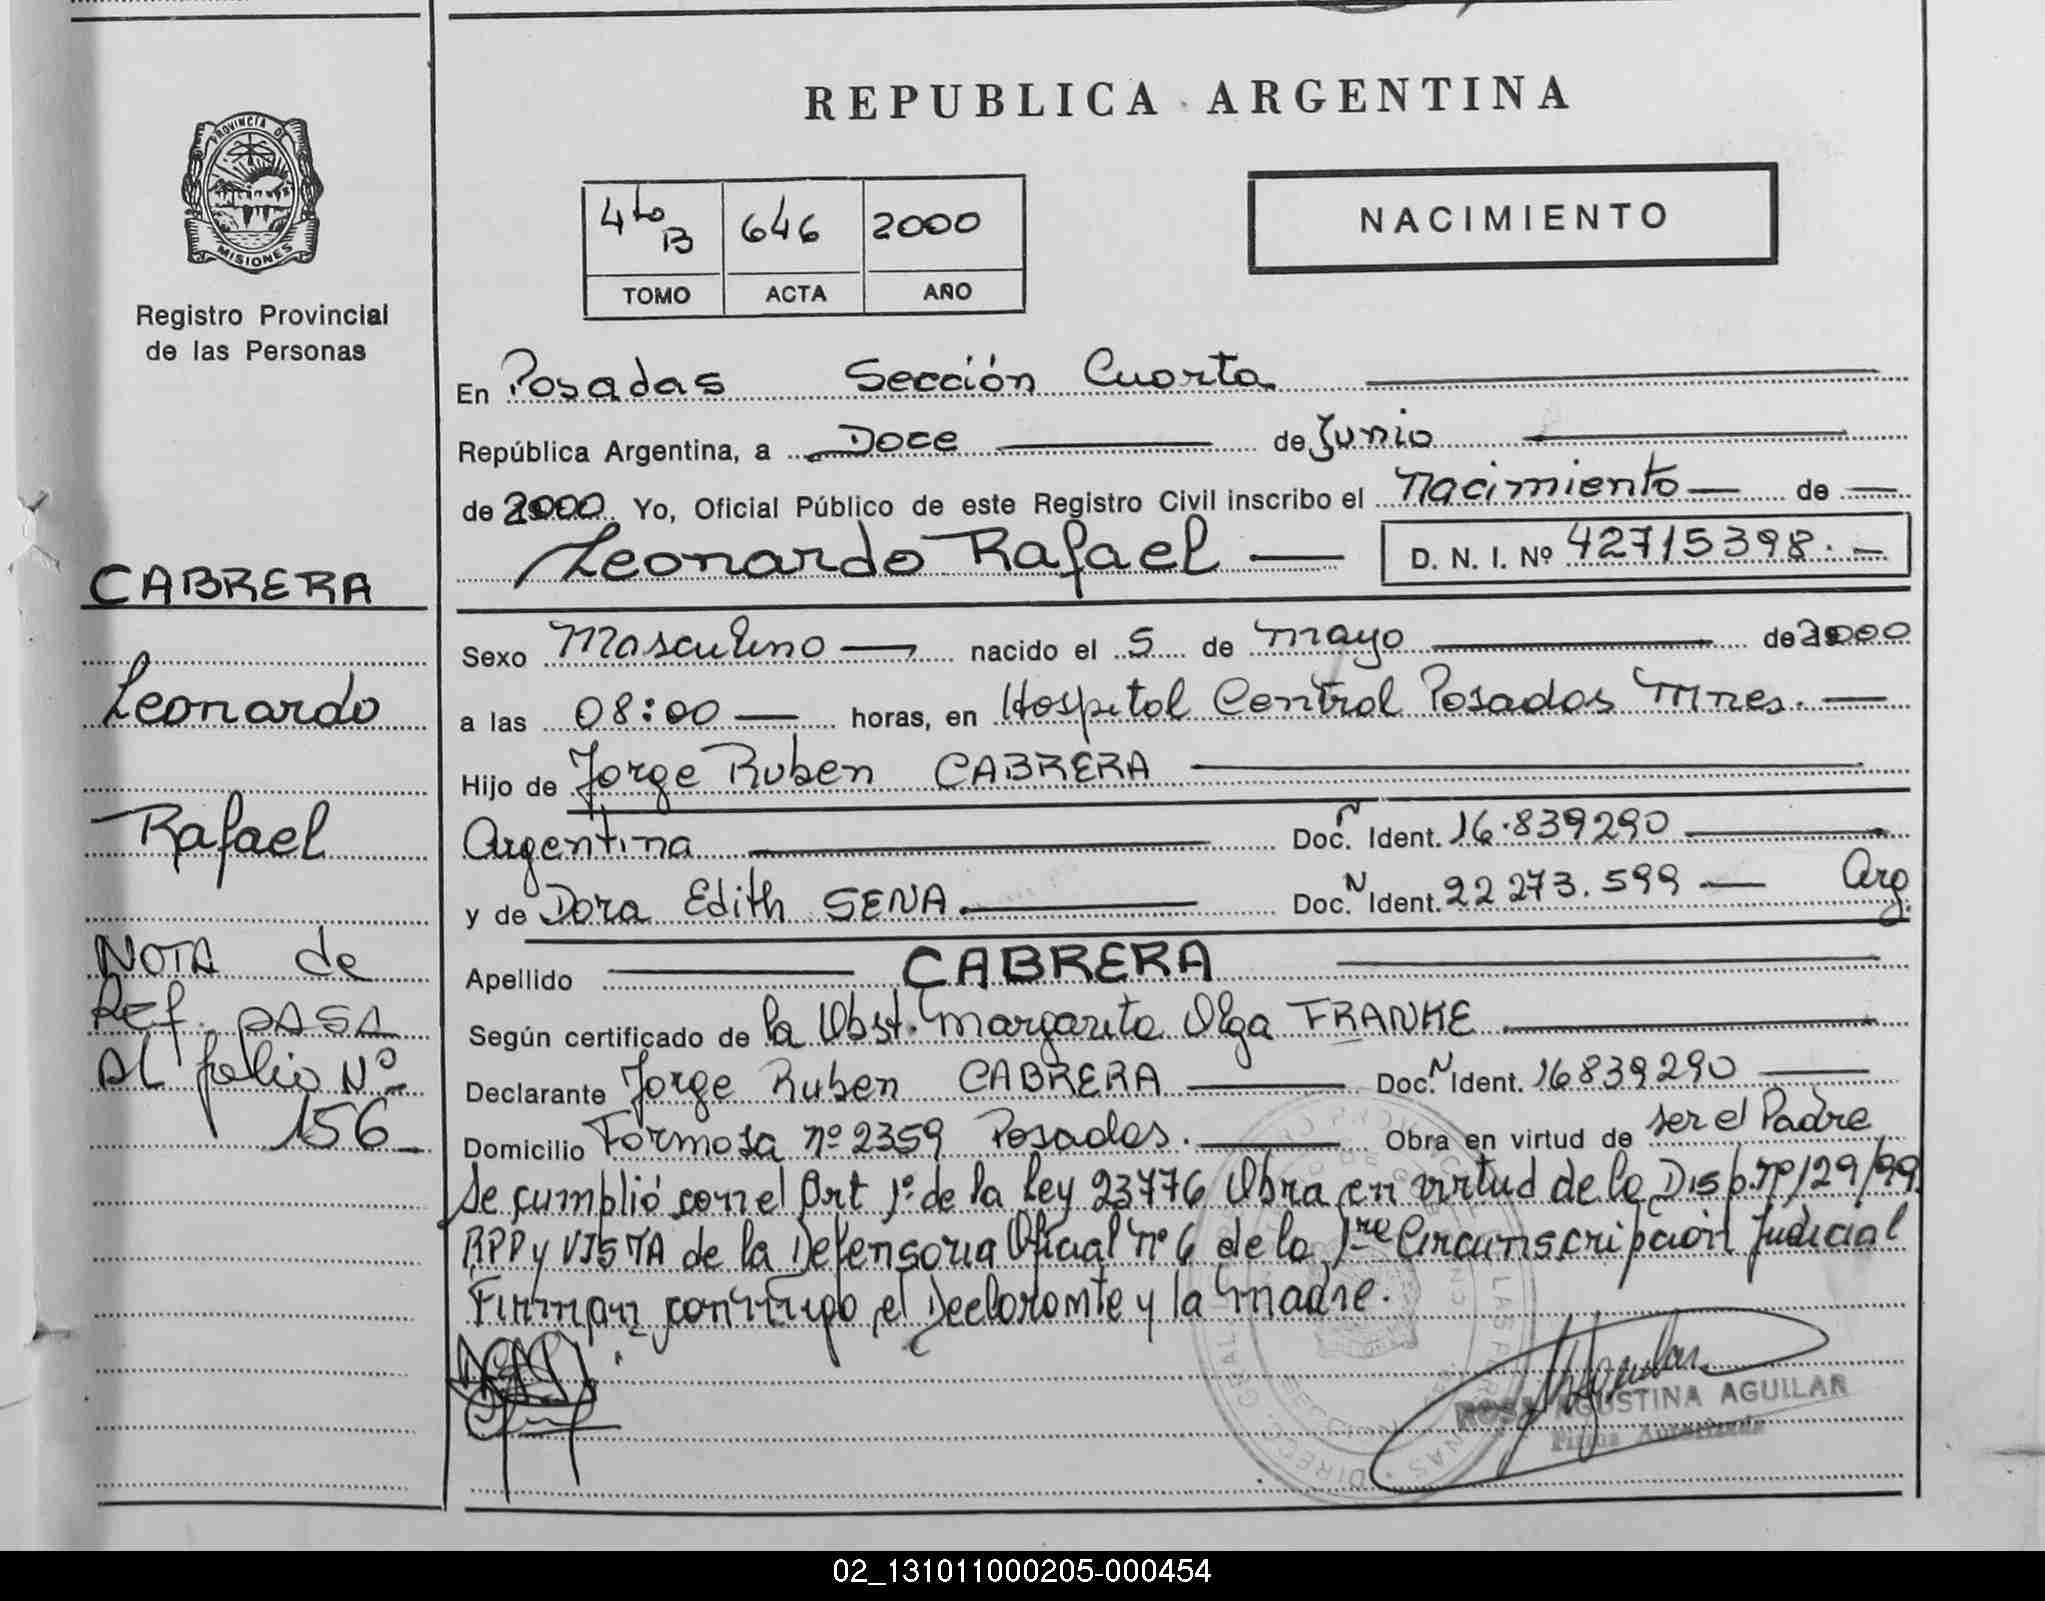 REPUBLICA ARGENTINA
PROVINCIA DE
MISIONES
Registro Provincial
de las Personas
4to B 646 2000
TOMO ACTA AÑO
NACIMIENTO
En Posadas Sección Cuarta
República Argentina, a Doce de Junio
de 2000 Yo, Oficial Público de este Registro Civil inscribo el Nacimiento de
Leonardo Rafael D. N. I. Nº 42715398.
Sexo Masculino nacido el 5 de Mayo de 2000
a las 08:00 horas, en Hospital Central Posadas Mnes.
Hijo de Jorge Ruben CABRERA
Argentina Doc. N Ident. 16.839290
y de Dora Edith SENA Doc. N Ident. 22 273.599 Arg.
Apellido CABRERA
Según certificado de la Obst. Margarita Olga FRANKE
Declarante Jorge Ruben CABRERA Doc. N Ident. 16839290
Domicilio Formosa nº 2359 Posadas. Obra en virtud de ser el Padre
Se cumplió con el Art 1º de la Ley 23776 Obra en virtud de la Disp. Nº/29/99
RPP y VISTA de la Defensoria Oficial nº 6 de la 1ra Circunscripción Judicial
Firman conmigo el Declarante y la Madre.
ROSA AGUSTINA AGUILAR
Firma Autorizada
CABRERA
Leonardo
Rafael
NOTA de
REF. PASA
AL folio Nº
156
02_131011000205-000454